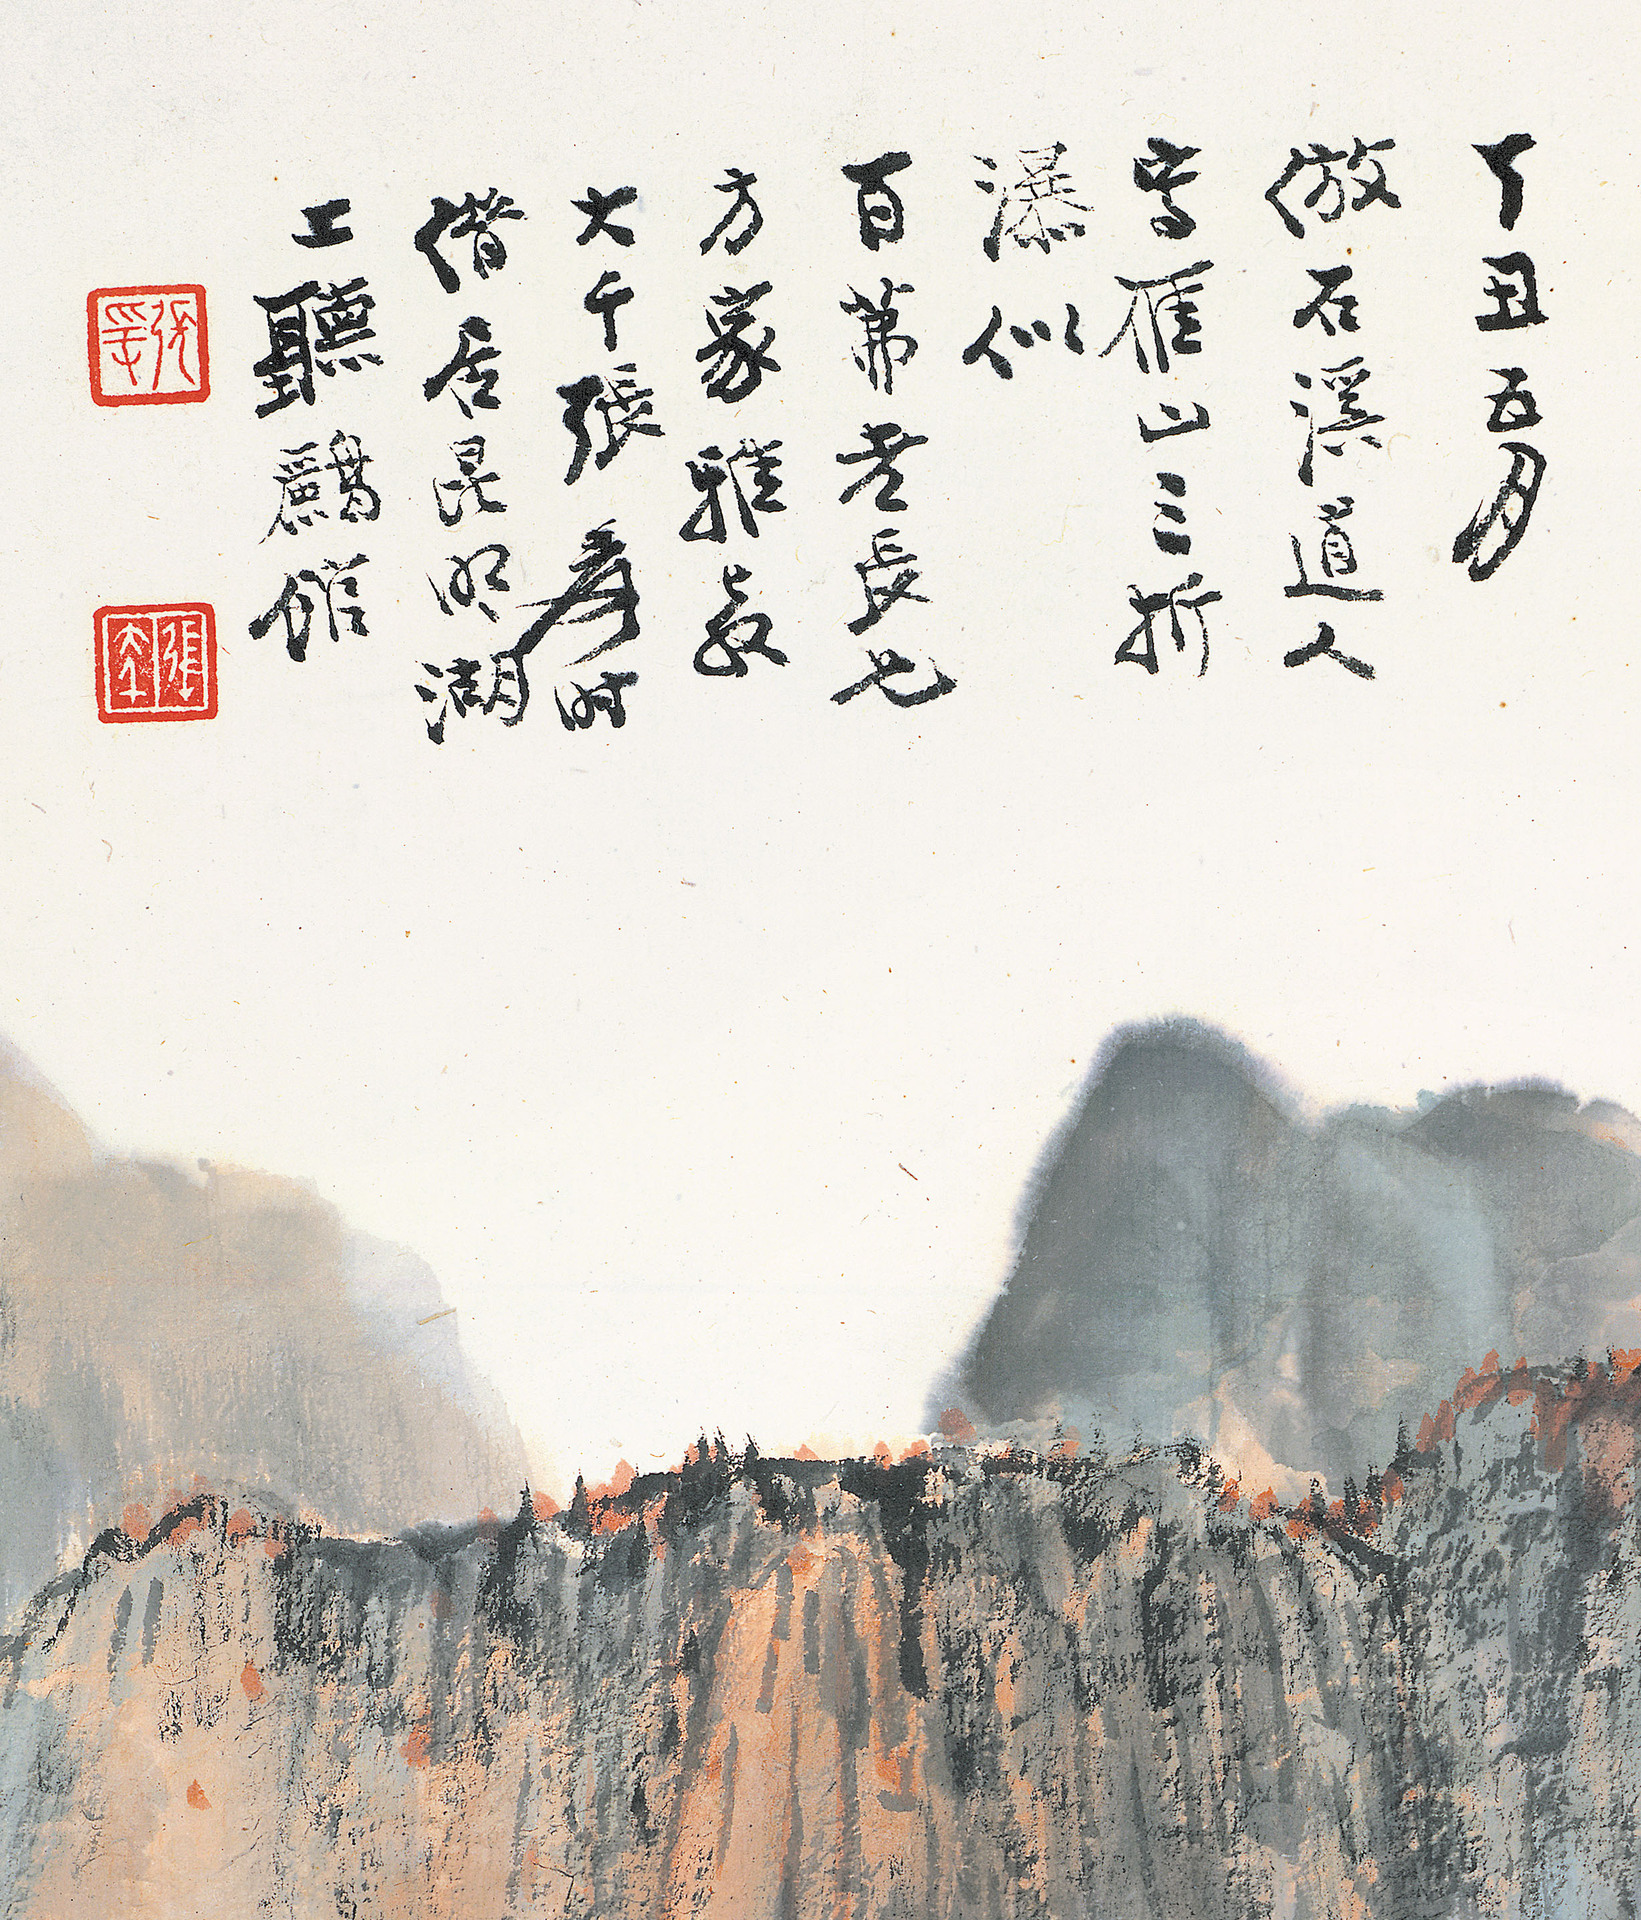 丁丑五月
倣石溪道人
寫雁山三折
瀑似
百弟老長兄
方家雅教
大千張爰时
借居昆明湖
上聽鸝館
張爰
張大千